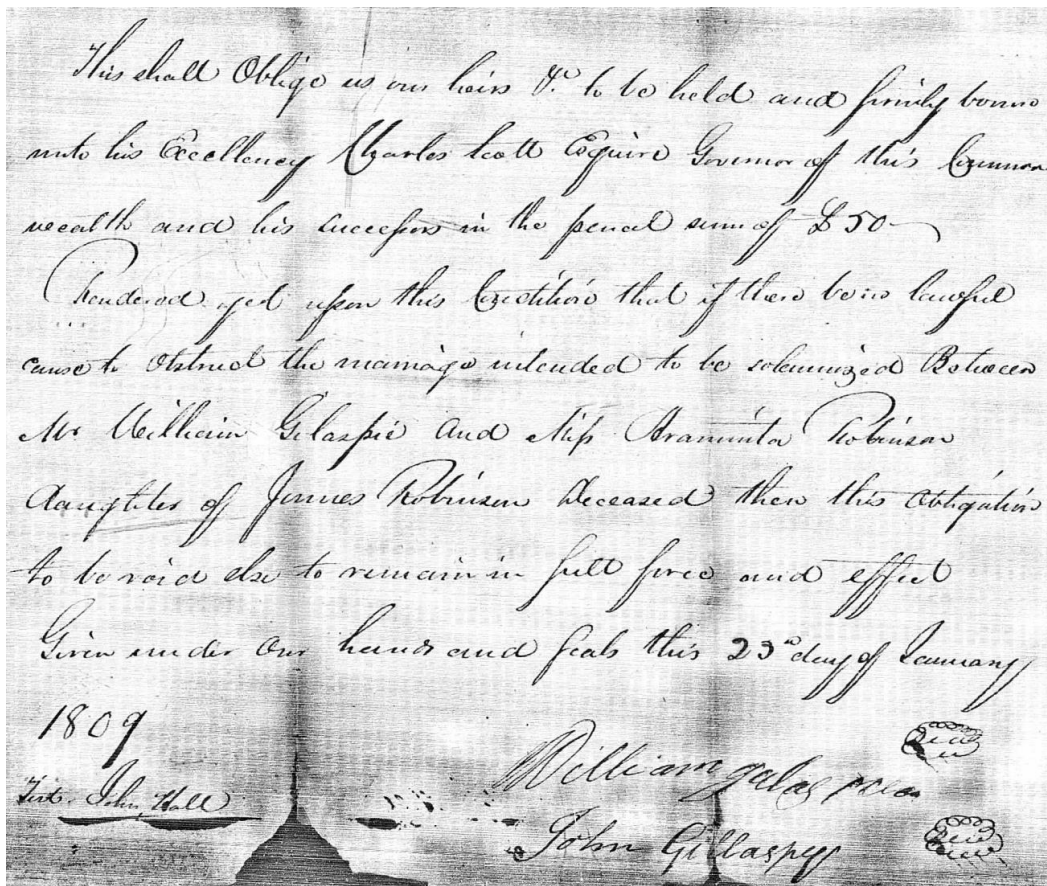 This shall Oblige us our heirs &c to be held and firmly bound
unto his Excellency Charles Scott Esquire Governor of this Common
wealth and his successors in the penal sum of £50
yet upon this Condition that if there be no lawful
cause to Obstruct the marriage intended to be solemnized Between
Mr William Gilaspie and Miss Araminta Robinson
daughter of James Robinson Deceased then this Obligation
to be void else to remain in full force and effect
Given under Our hands and seals this 23rd day of January
1809
William
Test. John Hall
John Gillaspey